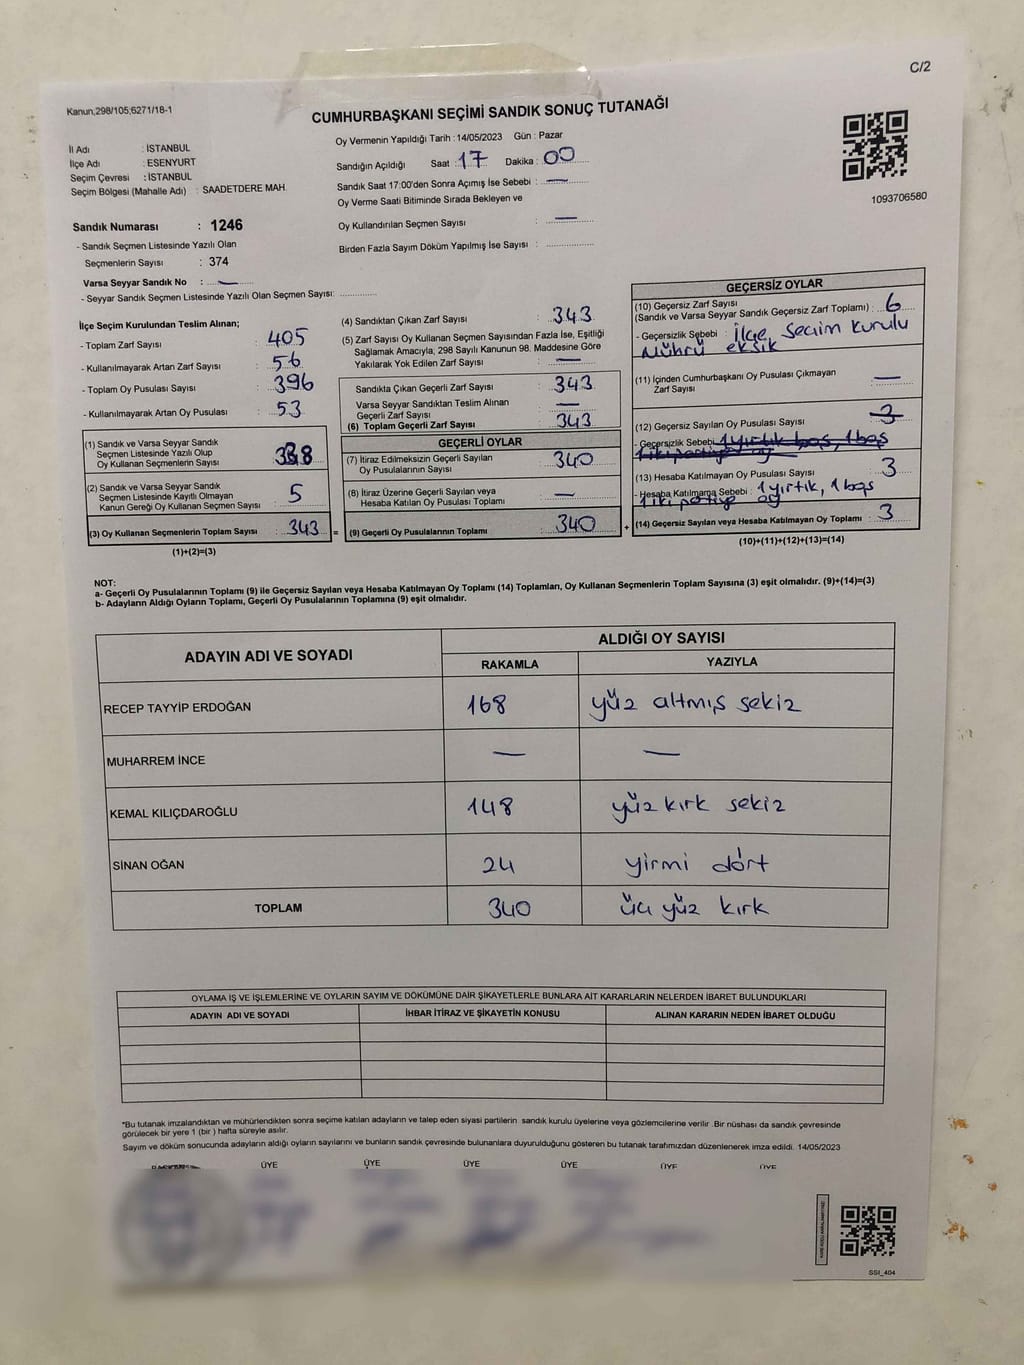 C/2
Kanun,298/105;6271/18-1
CUMHURBAŞKANI SEÇİMİ SANDIK SONUÇ TUTANAĞI
İl Adı : İSTANBUL
İlçe Adı : ESENYURT
Seçim Çevresi : İSTANBUL
Seçim Bölgesi (Mahalle Adı) : SAADETDERE MAH.
Sandık Numarası : 1246
- Sandık Seçmen Listesinde Yazılı Olan
Seçmenlerin Sayısı : 374
Varsa Seyyar Sandık No : —
- Seyyar Sandık Seçmen Listesinde Yazılı Olan Seçmen Sayısı:
Oy Vermenin Yapıldığı Tarih : 14/05/2023 Gün : Pazar
Sandığın Açıldığı Saat : 17 Dakika : 00
Sandık Saat 17:00'den Sonra Açımış İse Sebebi : —
Oy Verme Saati Bitiminde Sırada Bekleyen ve
Oy Kullandırılan Seçmen Sayısı : —
Birden Fazla Sayım Döküm Yapılmış İse Sayısı :
1093706580
İlçe Seçim Kurulundan Teslim Alınan;
- Toplam Zarf Sayısı : 405
- Kullanılmayarak Artan Zarf Sayısı : 56
- Toplam Oy Pusulası Sayısı : 396
- Kullanılmayarak Artan Oy Pusulası : 53
(1) Sandık ve Varsa Seyyar Sandık
Seçmen Listesinde Yazılı Olup
Oy Kullanan Seçmenlerin Sayısı 338
(2) Sandık ve Varsa Seyyar Sandık
Seçmen Listesinde Kayıtlı Olmayan
Kanun Gereği Oy Kullanan Seçmen Sayısı : 5
(3) Oy Kullanan Seçmenlerin Toplam Sayısı : 343 =
(1)+(2)=(3)
(4) Sandıktan Çıkan Zarf Sayısı : 343
(5) Zarf Sayısı Oy Kullanan Seçmen Sayısından Fazla İse, Eşitliği
Sağlamak Amacıyla, 298 Sayılı Kanunun 98. Maddesine Göre
Yakılarak Yok Edilen Zarf Sayısı : —
Sandıkta Çıkan Geçerli Zarf Sayısı : 343
Varsa Seyyar Sandıktan Teslim Alınan
Geçerli Zarf Sayısı : —
(6) Toplam Geçerli Zarf Sayısı : 343
GEÇERLİ OYLAR
(7) İtiraz Edilmeksizin Geçerli Sayılan
Oy Pusulalarının Sayısı : 340
(8) İtiraz Üzerine Geçerli Sayılan veya
Hesaba Katılan Oy Pusulası Toplamı : —
(9) Geçerli Oy Pusulalarının Toplamı : 340 +
GEÇERSİZ OYLAR
(10) Geçersiz Zarf Sayısı
(Sandık ve Varsa Seyyar Sandık Geçersiz Zarf Toplamı) : 6
- Geçersizlik Sebebi : İlçe Seçim kurulu
Mührü eksik
(11) İçinden Cumhurbaşkanı Oy Pusulası Çıkmayan
Zarf Sayısı : —
(12) Geçersiz Sayılan Oy Pusulası Sayısı : 3
- Geçersizlik Sebebi : 1 yırtık boş, 1 boş
1 iki partiye oy
(13) Hesaba Katılmayan Oy Pusulası Sayısı : 3
- Hesaba Katılmama Sebebi : 1 yırtık, 1 boş
1 iki partiye oy
(14) Geçersiz Sayılan veya Hesaba Katılmayan Oy Toplamı : 3
(10)+(11)+(12)+(13)=(14)
NOT:
a- Geçerli Oy Pusulalarının Toplamı (9) ile Geçersiz Sayılan veya Hesaba Katılmayan Oy Toplamı (14) Toplamları, Oy Kullanan Seçmenlerin Toplam Sayısına (3) eşit olmalıdır. (9)+(14)=(3)
b- Adayların Aldığı Oyların Toplamı, Geçerli Oy Pusulalarının Toplamına (9) eşit olmalıdır.
ADAYIN ADI VE SOYADI
ALDIĞI OY SAYISI
RAKAMLA YAZIYLA
RECEP TAYYİP ERDOĞAN 168 yüz altmış sekiz
MUHARREM İNCE — —
KEMAL KILIÇDAROĞLU 148 yüz kırk sekiz
SİNAN OĞAN 24 yirmi dört
TOPLAM 340 üç yüz kırk
OYLAMA İŞ VE İŞLEMLERİNE VE OYLARIN SAYIM VE DÖKÜMÜNE DAİR ŞİKAYETLERLE BUNLARA AİT KARARLARIN NELERDEN İBARET BULUNDUKLARI
ADAYIN ADI VE SOYADI İHBAR İTİRAZ VE ŞİKAYETİN KONUSU ALINAN KARARIN NEDEN İBARET OLDUĞU
*Bu tutanak imzalandıktan ve mühürlendikten sonra seçime katılan adayların ve talep eden siyasi partilerin sandık kurulu üyelerine veya gözlemcilerine verilir. Bir nüshası da sandık çevresinde
görülecek bir yere 1 (bir ) hafta süreyle asılır.
Sayım ve döküm sonucunda adayların aldığı oyların sayılarını ve bunların sandık çevresinde bulunanlara duyurulduğunu gösteren bu tutanak tarafımızdan düzenlenerek imza edildi. 14/05/2023
BAŞKAN ÜYE ÜYE ÜYE ÜYE ÜYE ÜYE
SSI_404